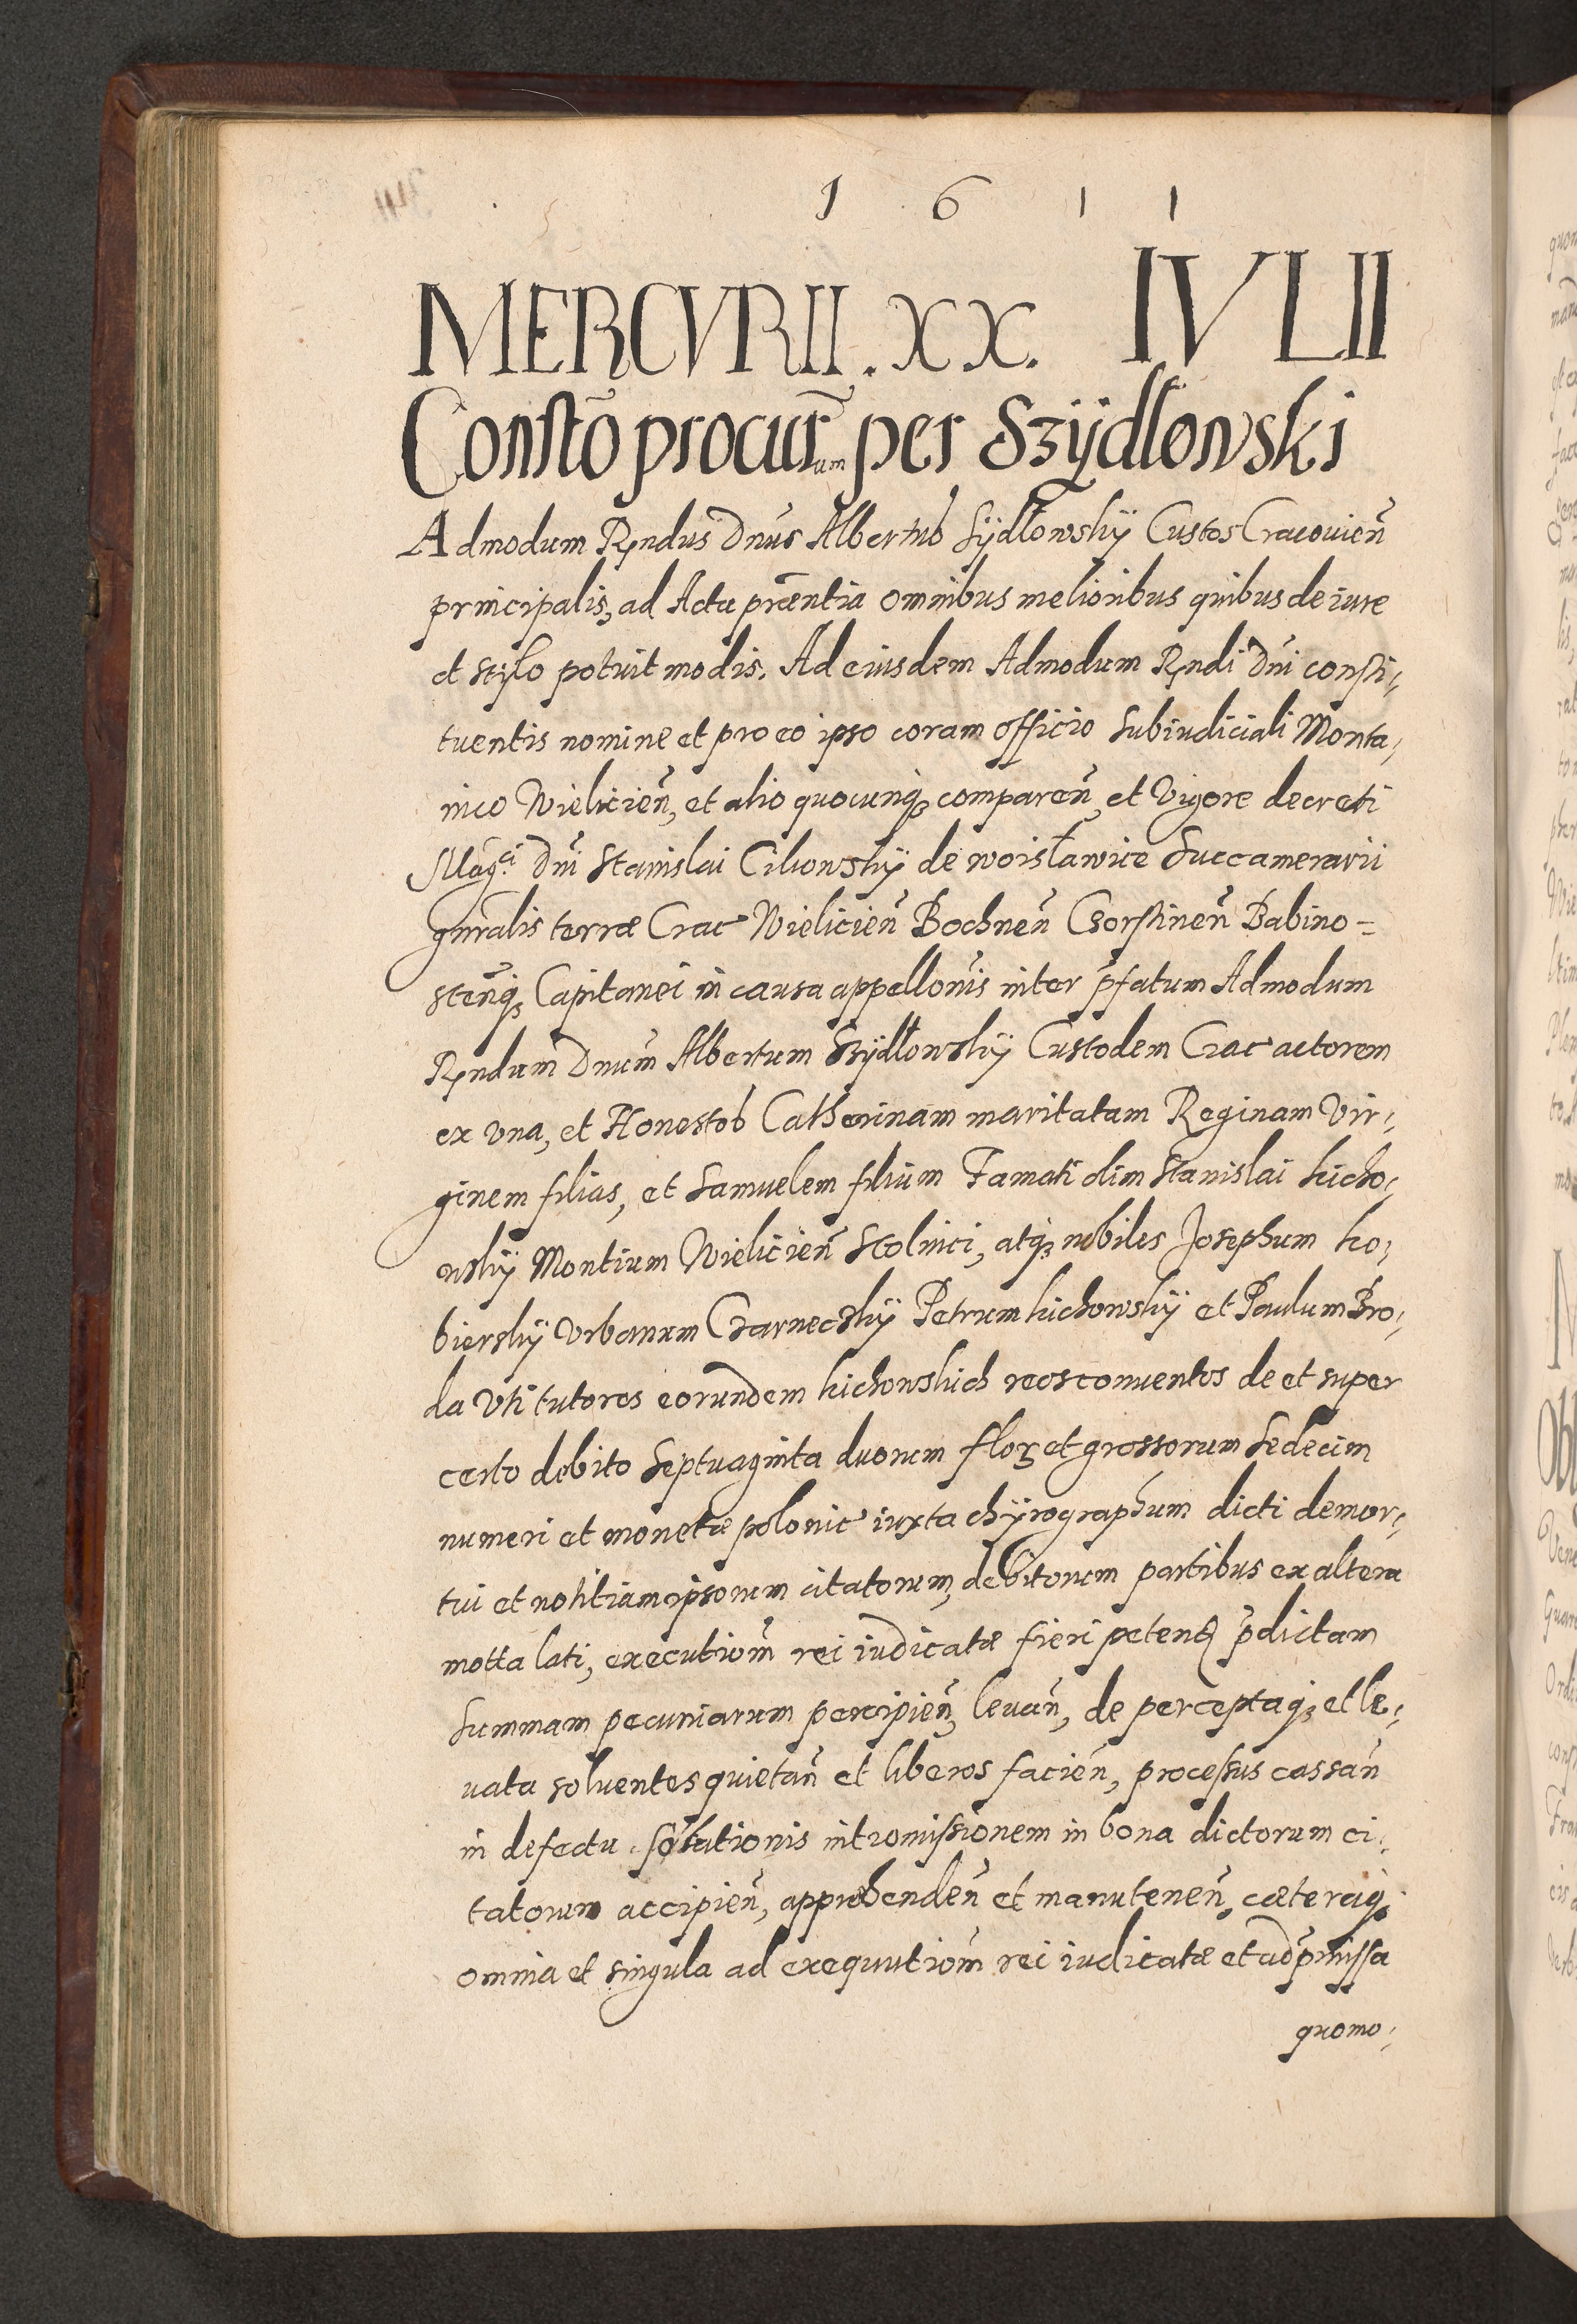 1 6 1 1
MERCVRII . XX. IVLII
Constõ procur̃um per Szÿdłowski
Admodum Rñdus Dñus Albertus Sÿdłowskÿ Custos Cracouieñ
principalis, ad Acta præ̃ntia omnibus melioribus quibus de iure
et stylo potuit modis. Ad eiusdem Admodum Rñdi Dñi consti,
tuentis nomine et pro eo ipso coram officio Subiudiciali Monta,
nico Wielicień, et alio quocunq₃ compareñ, et Vigore decreti
Mag.ci Dñi Stanislai Cikowskÿ de woisławice Succamerarii
gñralis terræ Crac Wielicień Bochneñ Czorstineñ Babino=
steñq₃ Capitanei in causa appellonis̃ inter p̃fatum Admodum
Rñdum Dnum̃ Albertum Szÿdłowskÿ Custodem Crac actorem
ex vna, et Honestos Catherinam maritatam Reginam Vir,
ginem filias, et Samuelem filium Famati olim Stanislai kicho,
wskÿ Montium Wielicień Stolnici, atq₃ nobiles Josephum ko,
bierskÿ Vrbanum Czarneckÿ Petrum kichowskÿ et Paulum Bro,
da Vti tutores eorundem kichowskich reos conuentos de et super
certo debito Septuaginta duorum floꝝ et grossorum Sedecim
numeri et monetæ polonic iuxta chÿrographum dicti demor,
tui et notitiam ipsorum citatorum, debitorum partibus ex altera
motta lati, executioñm rei iudicatæ fieri petenđ p̃dictam
Summam pecuniarum percipień, leuañ, de perceptaq₃ et le,
uata soluentes quietañ et liberos facień, processus cassañ
in defectu solutionis intromissionem in bona dictorum ci,
tatorum accipień, apprehendeñ et manuteneñ, cæteraq₃
omnia et singula ad exequutiom̃ rei iudicatæ et ad p̃missa
quomo,